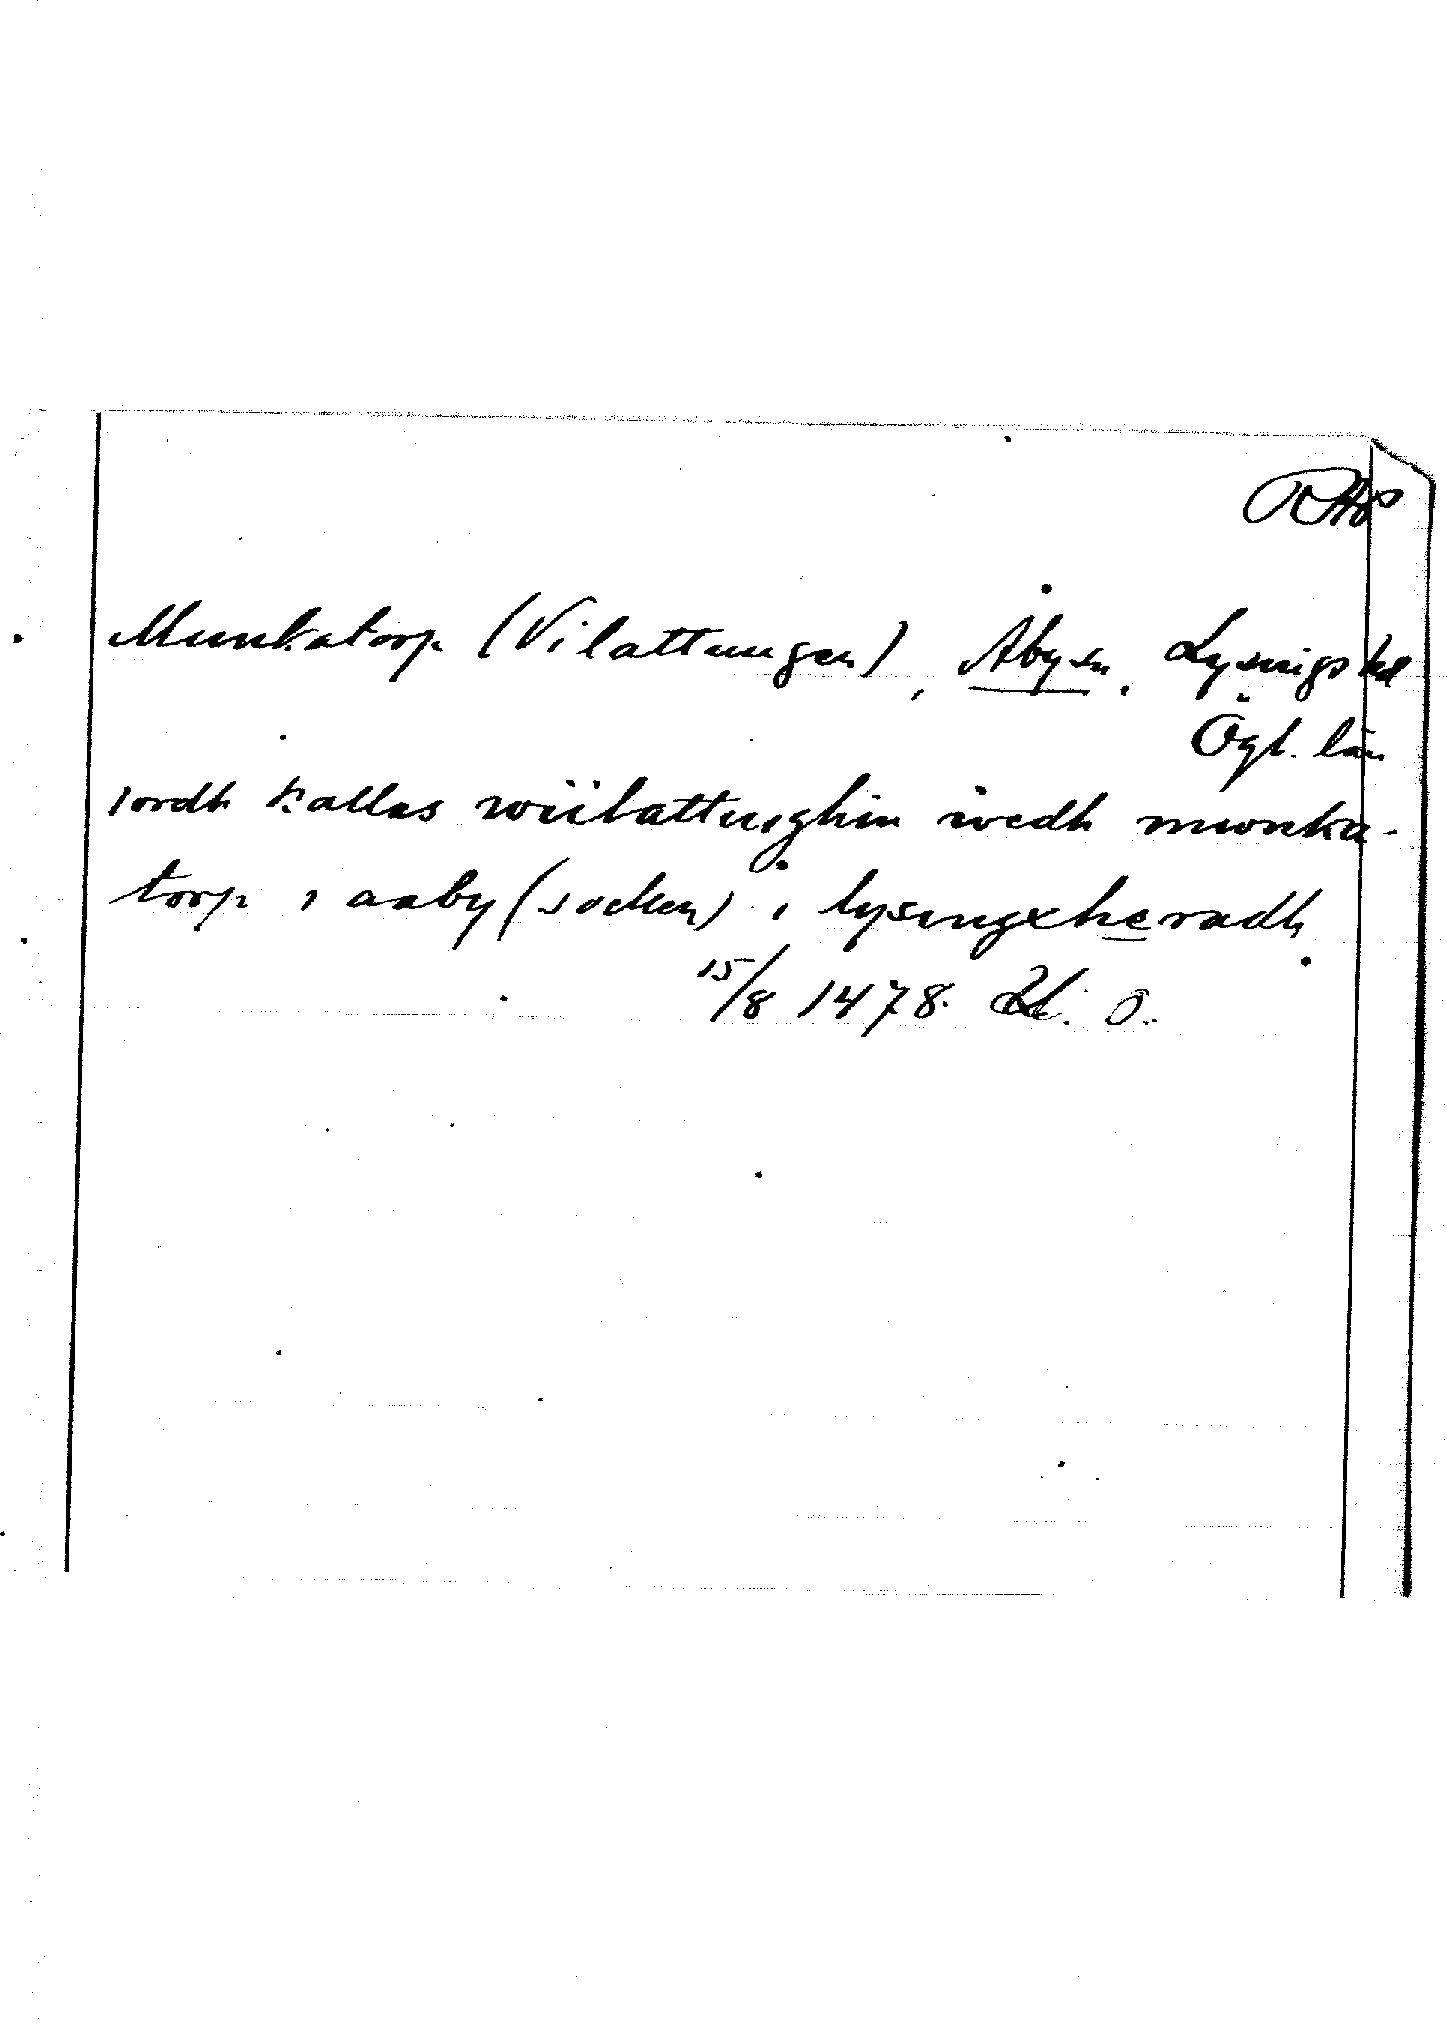 Munkatorp (Vilattungen), Åby sn, Lysings hd
Ögl. län
iordh kallas wiilattunghin wedh munka-
torp i aaby (socken) i lysingxheradh
15/8 1478. O.